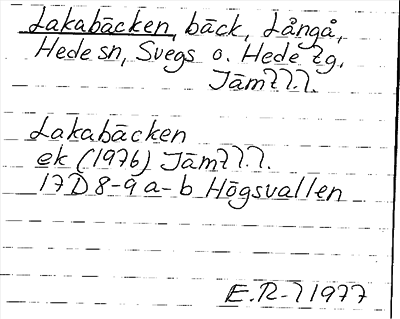 Lakabäcken, bäck, Långå,
Hede sn, Svegs o. Hede tg,
Jämtl.l.
Lakabäcken
ek (1976) Jämtl.l.
17D 8-9 a-b Högsvallen
E.R-l 1977